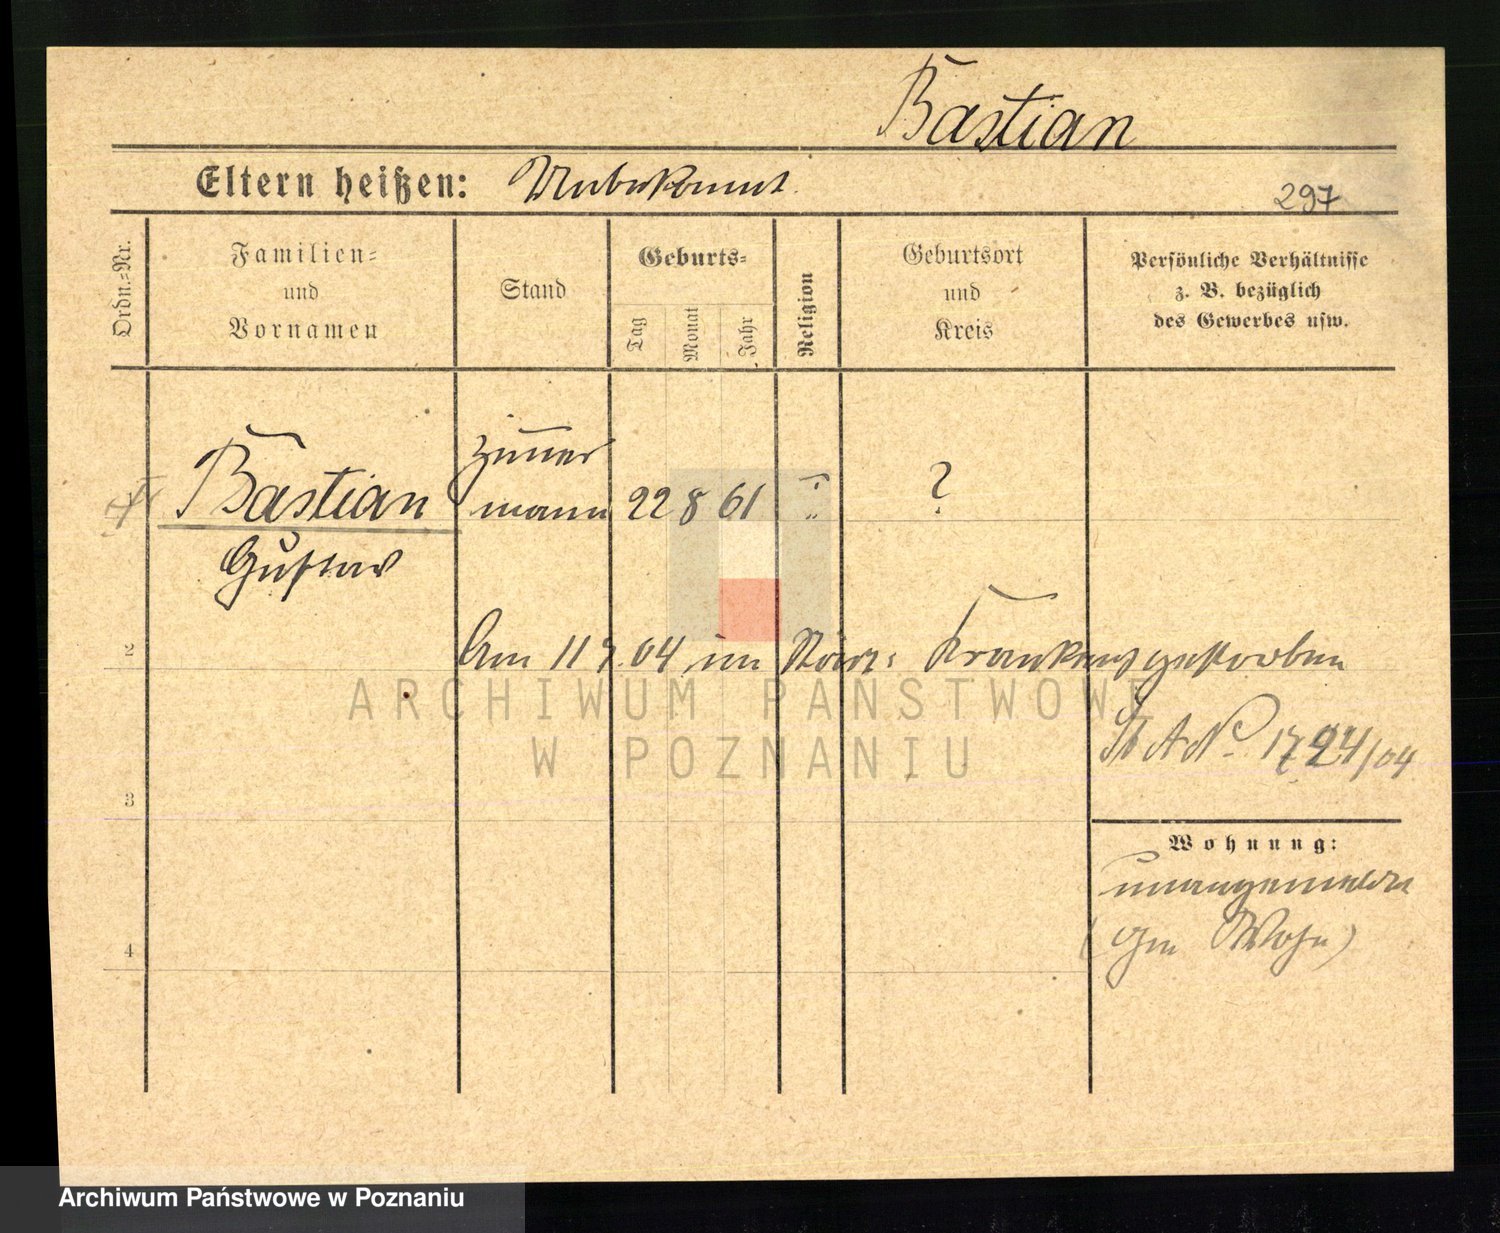 Bastian
Eltern heißen: Unbekannt.
297
Ordn.-Nr.
Familien-
und
Vornamen
Stand
Geburts-
Tag
Monat
Jahr
Religion
Geburtsort
und
Kreis
Persönliche Verhältnisse
z. B. bezüglich
des Gewerbes usw.
Bastian
Gustav
Zimmer
mann
22 8 61
?
2
Am 11 9. 04 im Krankenh gestorben
St A No 1724/04
ARCHIWUM PAŃSTWOWE
W POZNANIU
3
Wohnung:
unangemeldet
(Wohn)
4
Archiwum Państwowe w Poznaniu